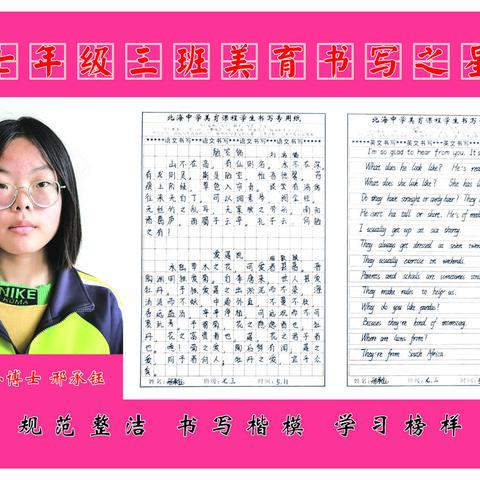 七年级三班美育书写之星
北海中学美育课程学生书写专用纸
***语文书写***语文书写***语文书写***
陋室铭
刘禹锡
山不在高，有仙则名。水不在深
有龙则灵。斯是陋室，惟吾德馨。苔
痕上阶绿，草色入帘青。谈笑有鸿儒
往来无白丁。可以调素琴，阅金经。
无丝竹之乱耳，无案牍之劳形。南阳
诸葛庐，西蜀子云亭。孔子云：何陋
之有？
爱莲说
周敦颐
水陆草木之花，可爱者甚蕃。晋
陶渊明独爱菊。自李唐来，世人甚爱
牡丹。予独爱莲之出淤泥而不染，濯
清涟而不妖，中通外直，不蔓不枝，
香远益清，亭亭净植，可远观而不可
亵玩焉。予谓菊，花之隐逸者也；牡
丹，花之富贵者也；莲，花之君子者
也。噫！菊之爱，陶后鲜有闻。莲之
爱，同予者何人？牡丹之爱，宜乎众
矣。
姓名：邢承钰 班级：七.三 时间：5.11
北海中学美育课程学生书写
***英文书写***英文书写***英文书
I'm so glad to hear from you. It's
What does he look like? He's rea
What does she look like? She has l
Do they have straight or curly hair? They
He isn't tall or short. He's of medi
I usually get up at six thirty.
They always get dressed at seven twen
They usually exercise on weekends.
Parents and schools are sometimes
They make rules to help us.
Why do you like pandas?
Because they're kind of interesting.
Where are lions from?
They're from South Africa.
姓名：邢承钰 班级：七.三 时间：5.
NIKE
博士 邢承钰
规范整洁 书写楷模 学习榜样